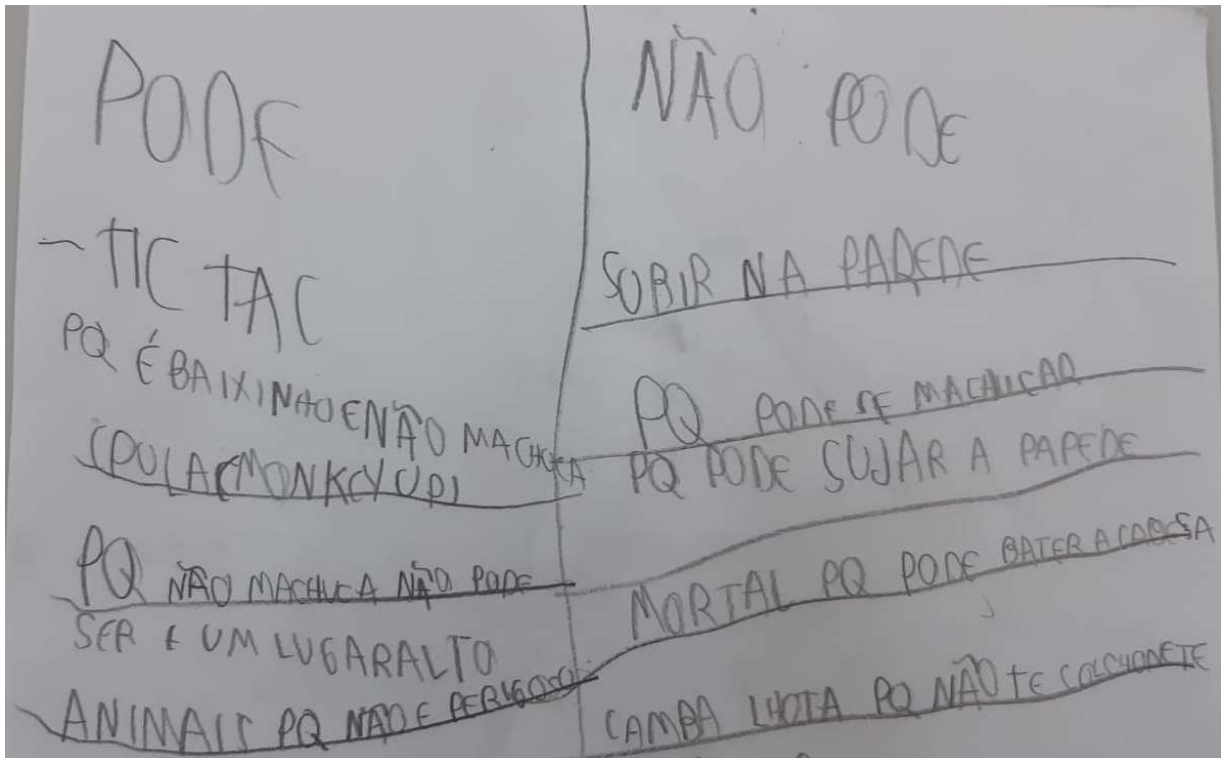 PODE
- TIC TAC
PQ É BAIXINHO E NÃO MACHUCA
(MONKEY UP)
PQ NÃO MACHUCA NÃO PODE
SER E UM LUGAR ALTO
ANIMAIS PQ NÃO E PERIGOSO
NÃO PODE
SUBIR NA PAREDE
PQ PODE SE MACHUCAR
PQ PODE SUJAR A PAREDE
MORTAL PQ PODE BATER A CABESA
CAMBA LHOTA PQ NÃO TE COLCHONETE